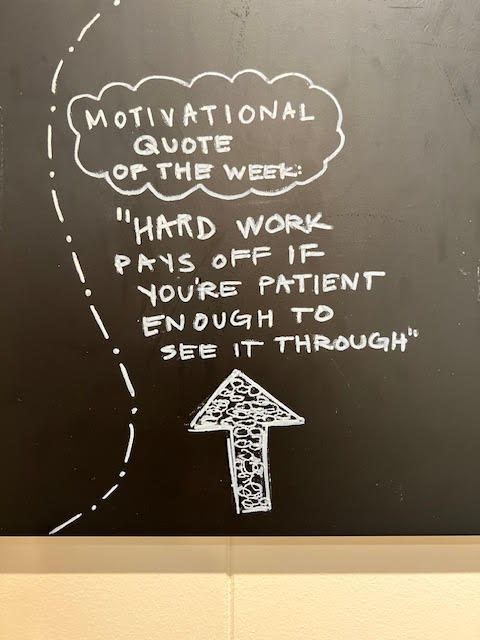 MOTIVATIONAL
QUOTE
OF THE WEEK:
"HARD WORK
PAYS OFF IF
YOU'RE PATIENT
ENOUGH TO
SEE IT THROUGH"